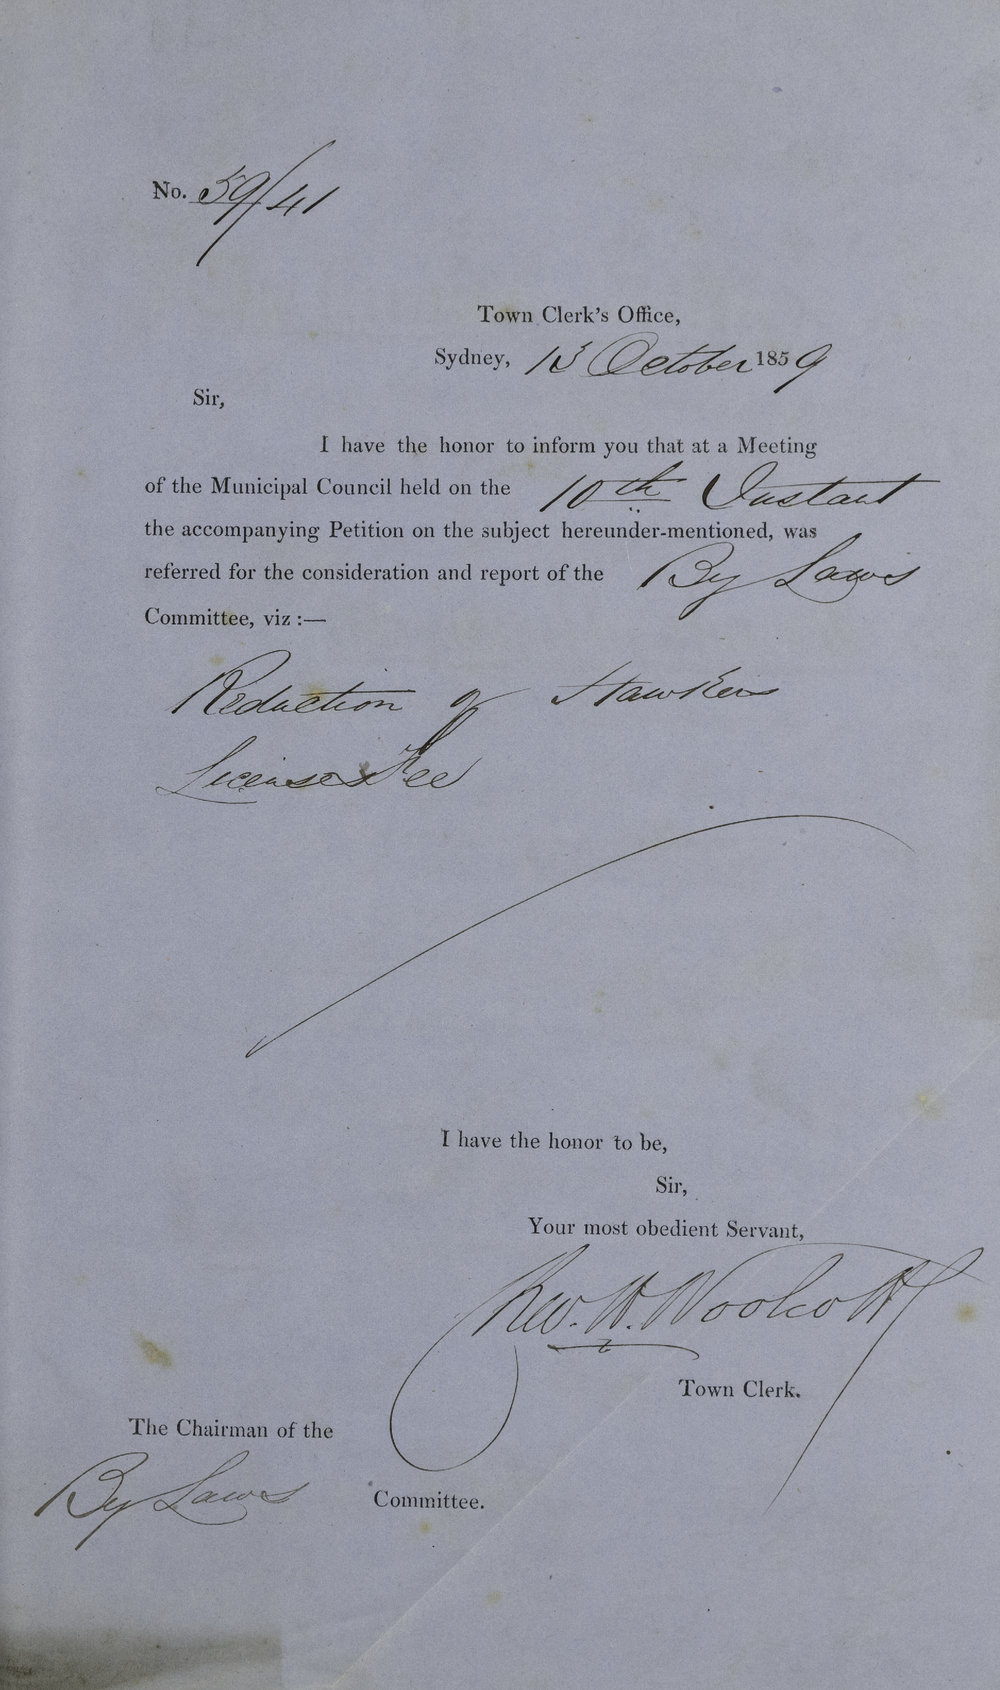 No. 59/41
Town Clerk's Office,
Sydney, 13 October 1859
Sir,
I have the honor to inform you that at a Meeting
of the Municipal Council held on the 10th Instant
the accompanying Petition on the subject hereunder-mentioned, was
referred for the consideration and report of the By Laws
Committee, viz :—
Reduction of Hawkers
License Fee
I have the honor to be,
Sir,
Your most obedient Servant,
Chas. H. Woolcott
Town Clerk.
The Chairman of the
By Laws Committee.